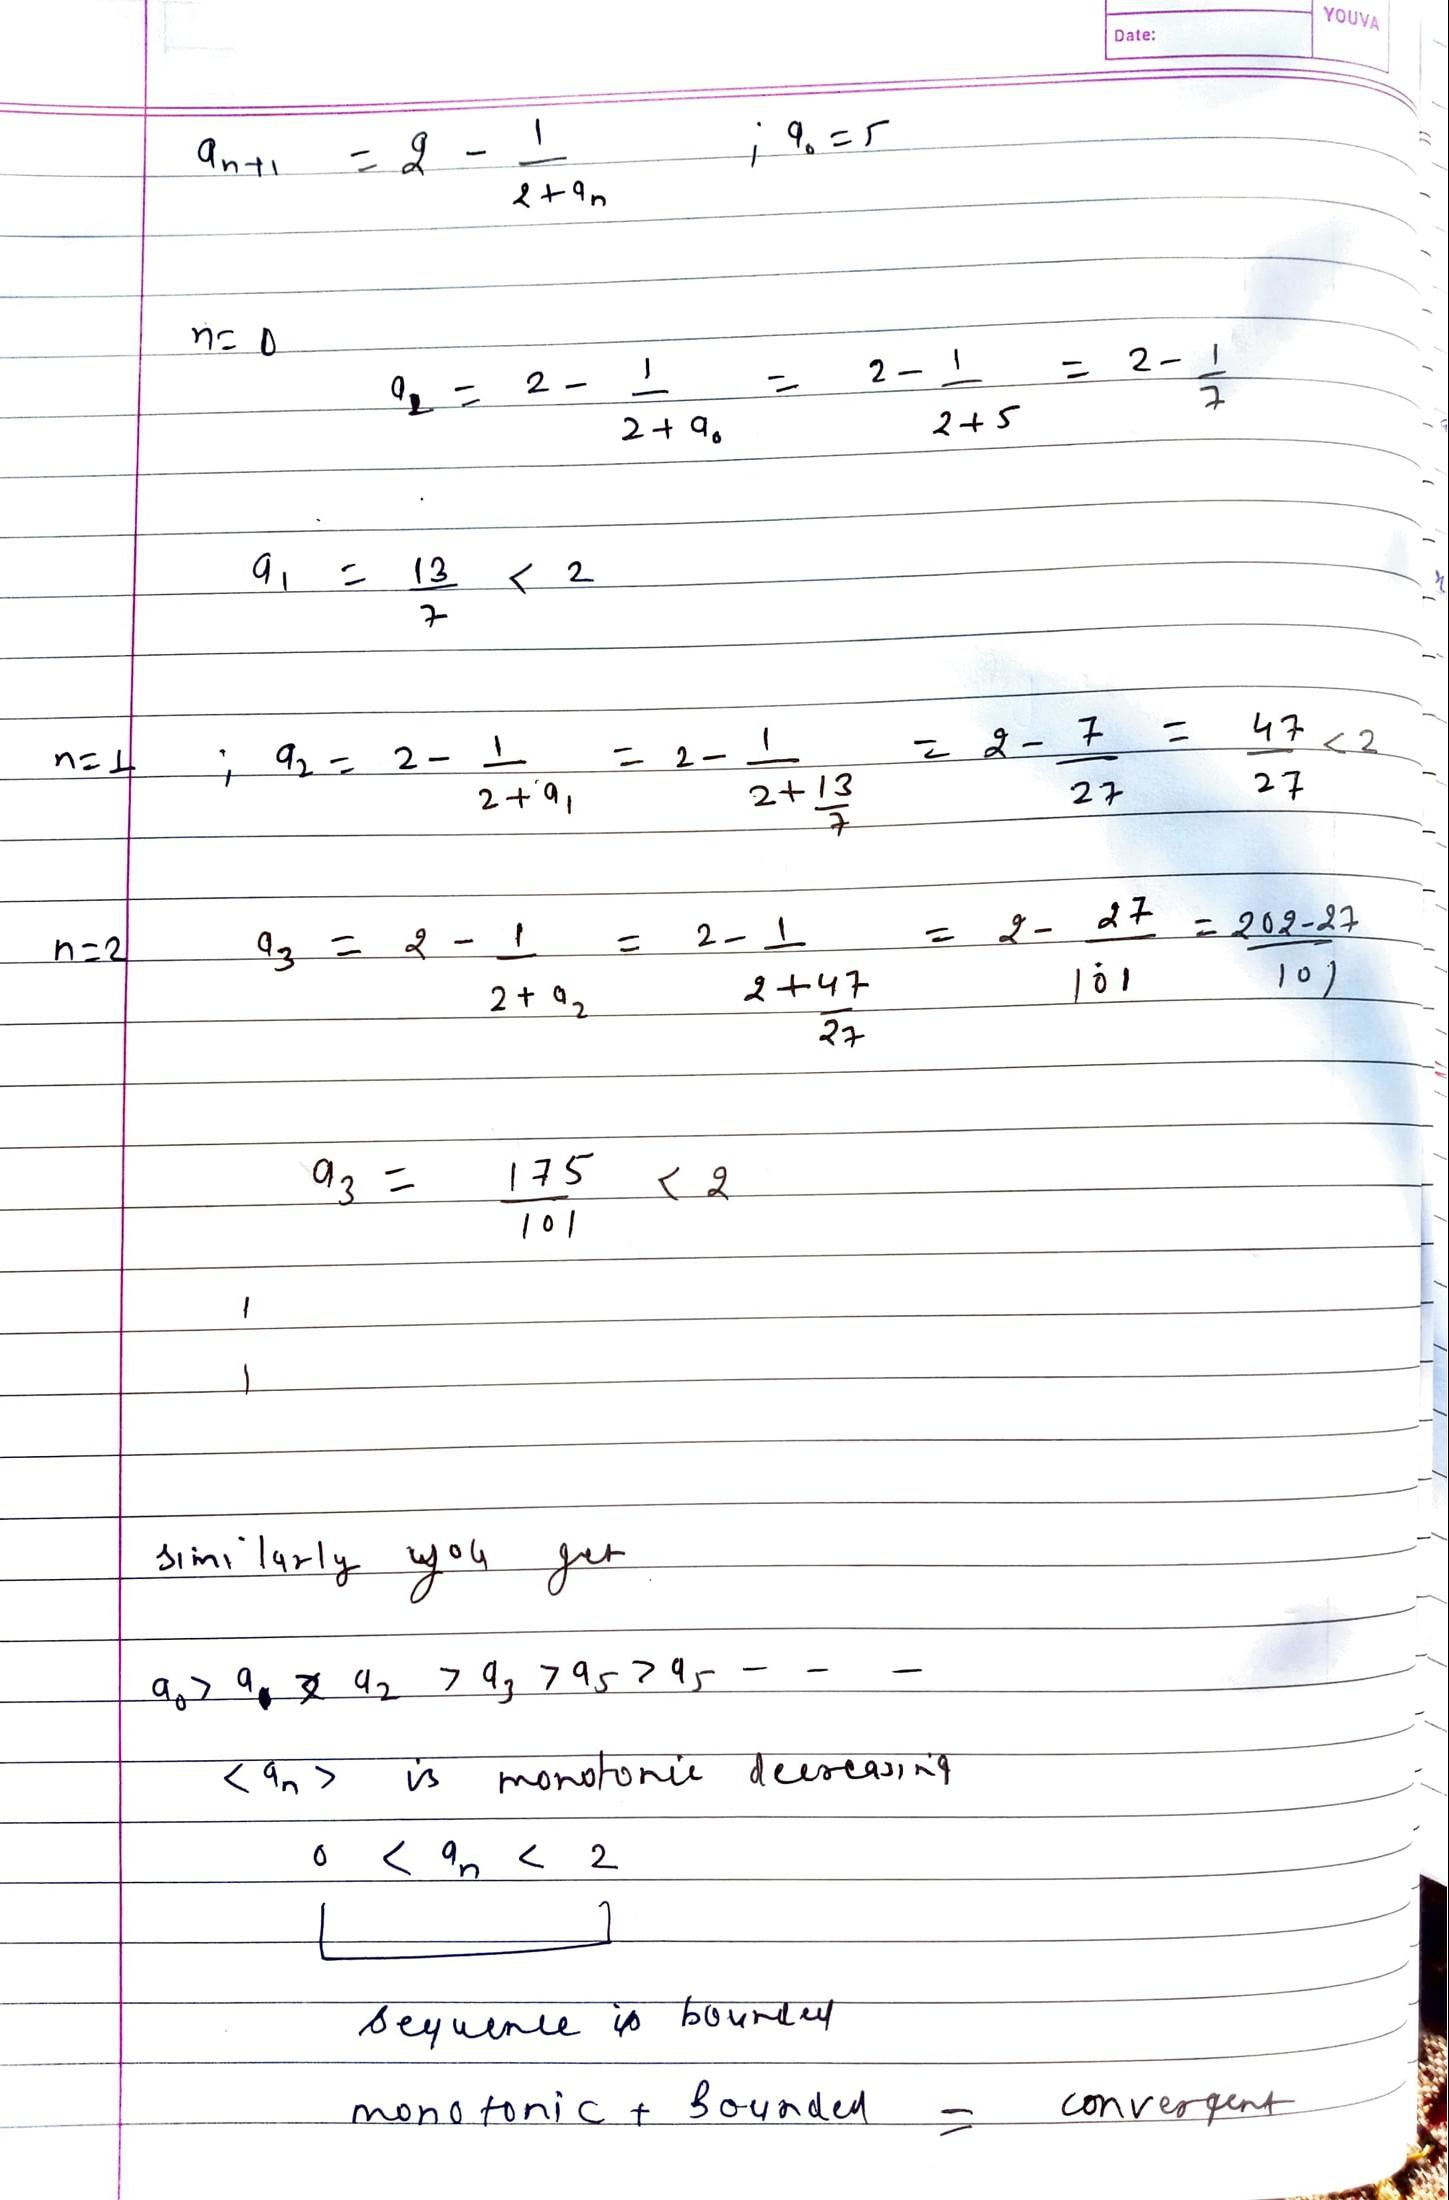 YOUVA
Date:
a_{n+1} = 2 - \frac{1}{2+a_n} ; a_0 = 5
n = 0
a_1 = 2 - \frac{1}{2+a_0} = 2 - \frac{1}{2+5} = 2 - \frac{1}{7}
a_1 = \frac{13}{7} < 2
n = 1 ; a_2 = 2 - \frac{1}{2+a_1} = 2 - \frac{1}{2+\frac{13}{7}} = 2 - \frac{7}{27} = \frac{47}{27} < 2
n = 2 a_3 = 2 - \frac{1}{2+a_2} = 2 - \frac{1}{2+\frac{47}{27}} = 2 - \frac{27}{101} = \frac{202-27}{101}
a_3 = \frac{175}{101} < 2
similarly you get
a_0 > a_1 > a_2 > a_3 > a_5 > a_5 - - -
<a_n> is monotonic decreasing
0 < a_n < 2
sequence is bounded
monotonic + Bounded = convergent